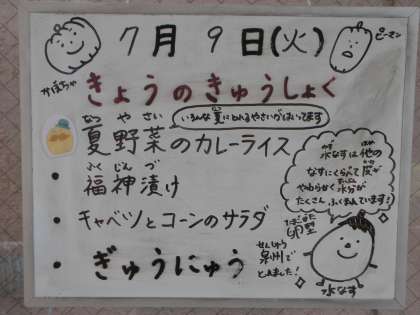 7月9日(火)
かぼちゃ
ピーマン
きょうのきゅうしょく
なつ や さい
いろんな夏にとれるやさいがはいってます
夏野菜のカレーライス
ふく じん づ
・福神漬け
・キャベツとコーンのサラダ
・ぎゅうにゅう
水なすは他の
なすにくらべて皮が
やわらかく水分が
たくさんふくまれています!
たまごがた
卵型
せんしゅう
泉州で
とれました!
水なす